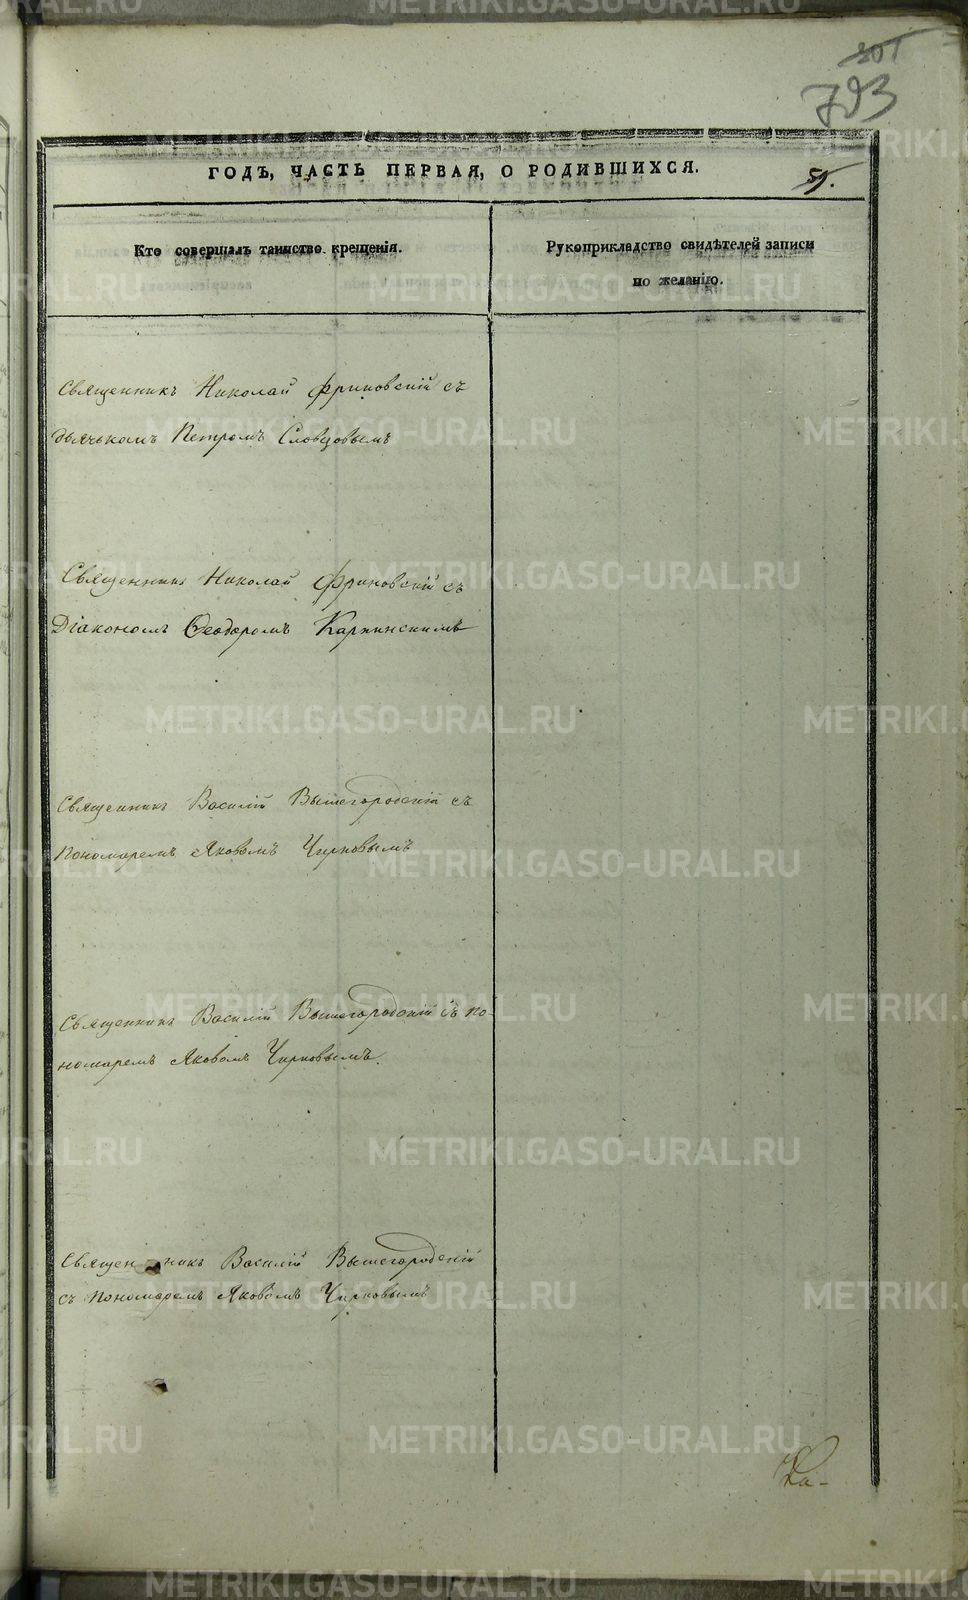 793
ГОДЪ, ЧАСТЬ ПЕРВАЯ, О РОДИВШИХСЯ.
Кто совершалъ таинство крещенія.
Рукоприкладство свидѣтелей записи
по желанію.
Священникъ Николай Фриновскій съ
дьячькомъ Петромъ Словцовымъ
Священникъ Николай Фриновскій съ
Діакономъ Ѳеодоромъ Карпинскимъ
Священникъ Василій Вышегородскій съ
пономаремъ Яковомъ Чирковымъ
Священникъ Василій Вышегородскій съ по-
номаремъ Яковомъ Чирковымъ.
Священникъ Василій Вышегородскій
съ пономаремъ Яковомъ Чирковымъ
METRIKI.GASO-URAL.RU